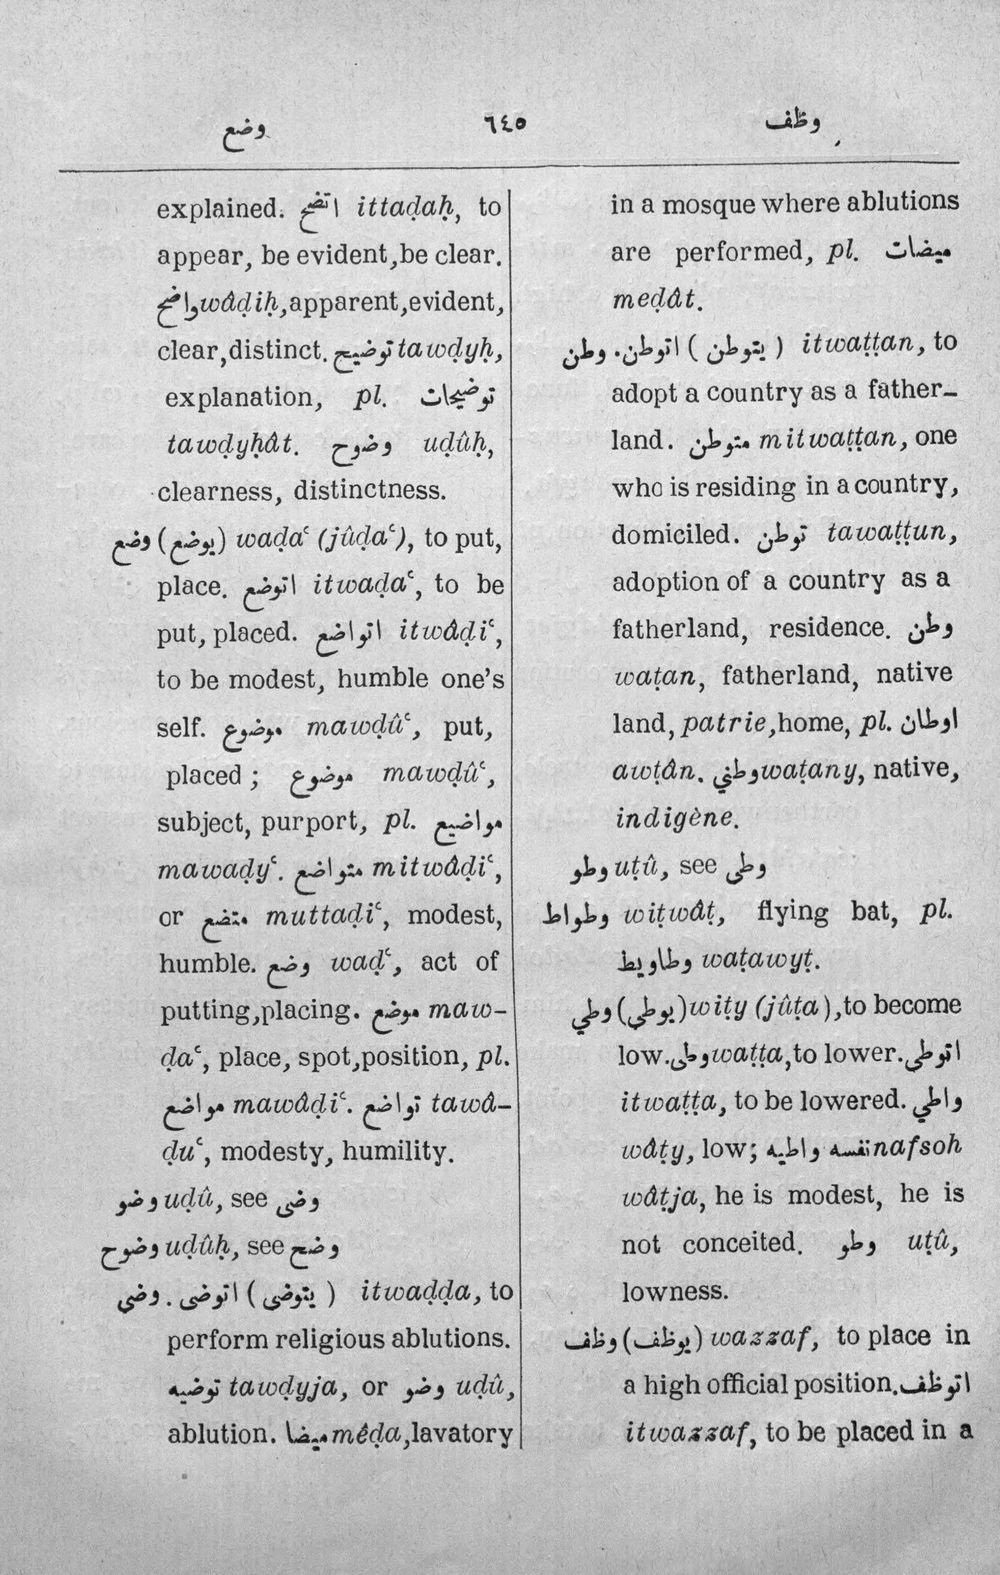 وضع ٦٤٥ وظف
explained. اتضح ittaḍaḥ, to
appear, be evident, be clear.
واضح wâḍiḥ, apparent, evident,
clear, distinct. توضيح tawḍyḥ,
explanation, pl. توضيحات
tawḍyḥât. وضوح uḍûḥ,
clearness, distinctness.
وضع (يوضع) waḍaʿ (jûḍaʿ), to put,
place. اتوضع itwaḍaʿ, to be
put, placed. اتواضع itwâḍiʿ,
to be modest, humble one's
self. موضوع mawḍûʿ, put,
placed ; موضوع mawḍûʿ,
subject, purport, pl. مواضيع
mawaḍyʿ. متواضع mitwâḍiʿ,
or متضع muttaḍiʿ, modest,
humble. وضع waḍʿ, act of
putting, placing. موضع maw-
ḍaʿ, place, spot, position, pl.
مواضع mawâḍiʿ. تواضع tawâ-
ḍuʿ, modesty, humility.
وضو uḍû, see وضى
وضوح uḍûḥ, see وضح
وضي . اتوضى (يتوضى) itwaḍḍa, to
perform religious ablutions.
توضيه tawḍyja, or وضو uḍû,
ablution. ميضا mêḍa, lavatory
in a mosque where ablutions
are performed, pl. ميضات
meḍât.
وطن . اتوطن (يتوطن) itwaṭṭan, to
adopt a country as a father-
land. متوطن mitwaṭṭan, one
who is residing in a country,
domiciled. توطن tawaṭṭun,
adoption of a country as a
fatherland, residence. وطن
waṭan, fatherland, native
land, patrie, home, pl. اوطان
awṭân. وطني waṭany, native,
indigène.
وطو uṭû, see وطى
وطواط wiṭwâṭ, flying bat, pl.
وطاويط waṭawyṭ.
وطي (يوطى) wiṭy (jûṭa), to become
low. وطى waṭṭa, to lower. اتوطى
itwaṭṭa, to be lowered. واطي
wâṭy, low; نفسه واطيه nafsoh
wâṭja, he is modest, he is
not conceited. وطو uṭû,
lowness.
وظف (يوظف) wazzaf, to place in
a high official position. اتوظف
itwazzaf, to be placed in a